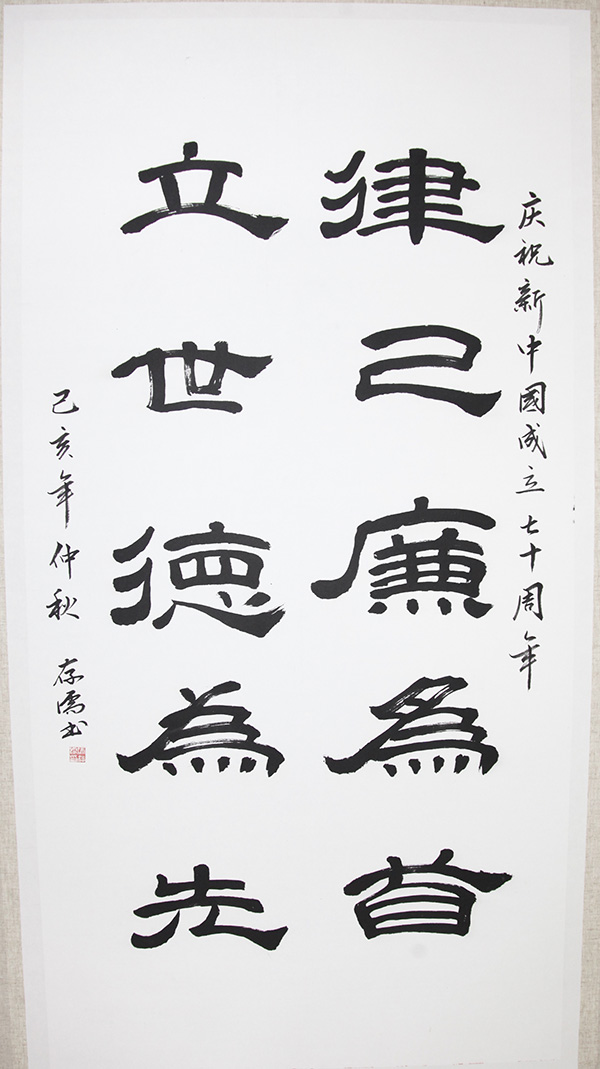 庆祝新中國成立七十周年
律己廉為首
立世德為先
己亥年仲秋 存儒书